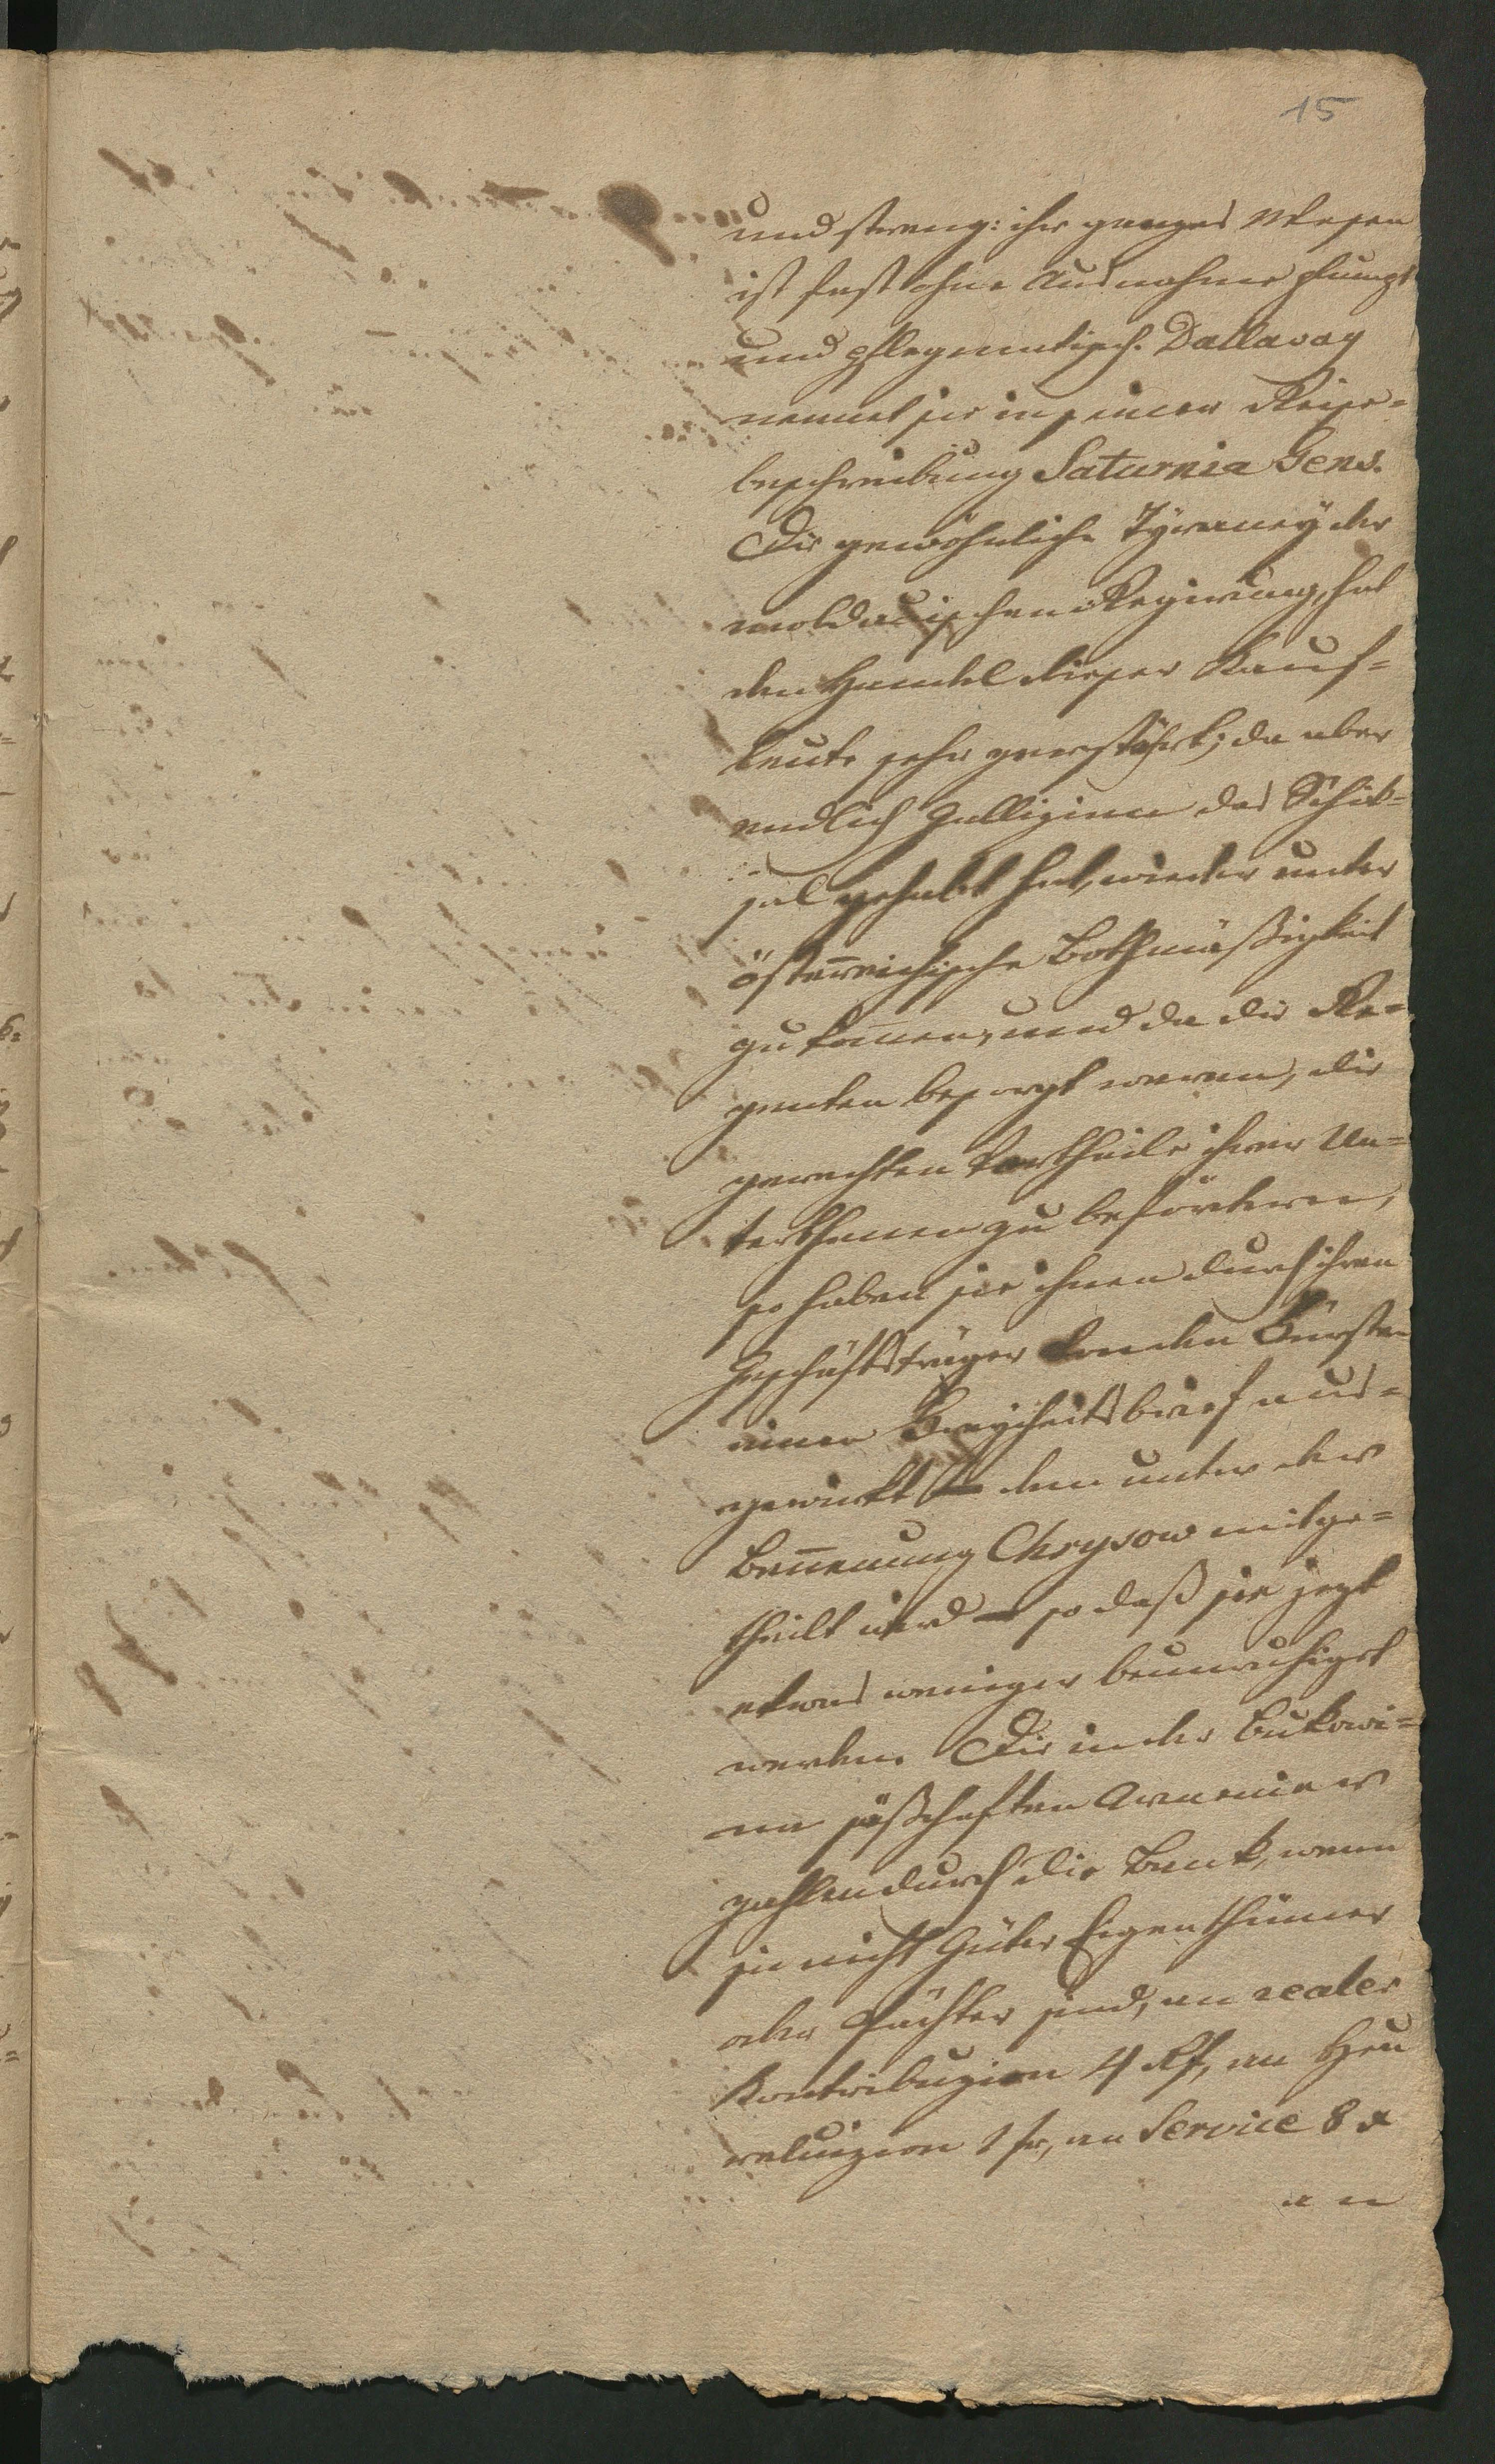 15
und streng: ihr ganzes Wesen
ist fast ohne Ausnahme plump
und phlegmatisch. Dallavay
nennet sie in seiner Reise=
beschreibung Saturnia Gens.
Die gewöhnliche Tÿraneÿ der
moldauischen Regierung, hat
den Handel dieser Kauf=
leute sehr gestöhrt; da aber
endlich Gallizien das Schik=
sal gehabt hat, wieder unter
österreichische Bothmäßigkeit
zu kom̄en, und da die Re=
genten besorgt waren, die
gerechten Vortheile ihrer Un=
terthanen zu befördern,
so haben sie ihnen durch ihren
Geschäftsträger von den Fürsten
einen Freyheitsbrief aus=
gewirkt – den unter der
Benen̄ung Chrysow mitge=
theilt wird – so daß sie jezt
etwas weniger beunruhiget
werden. Die in der Bukowi=
na säßhaften Armenier
zahlen durch die Bank, wenn
sie nicht Güter Eigenthümer
oder Pächter sind, an realer
Kontribuzion 4 Rf, an Heu
reluizion 1 fr, an Service 8 x
an